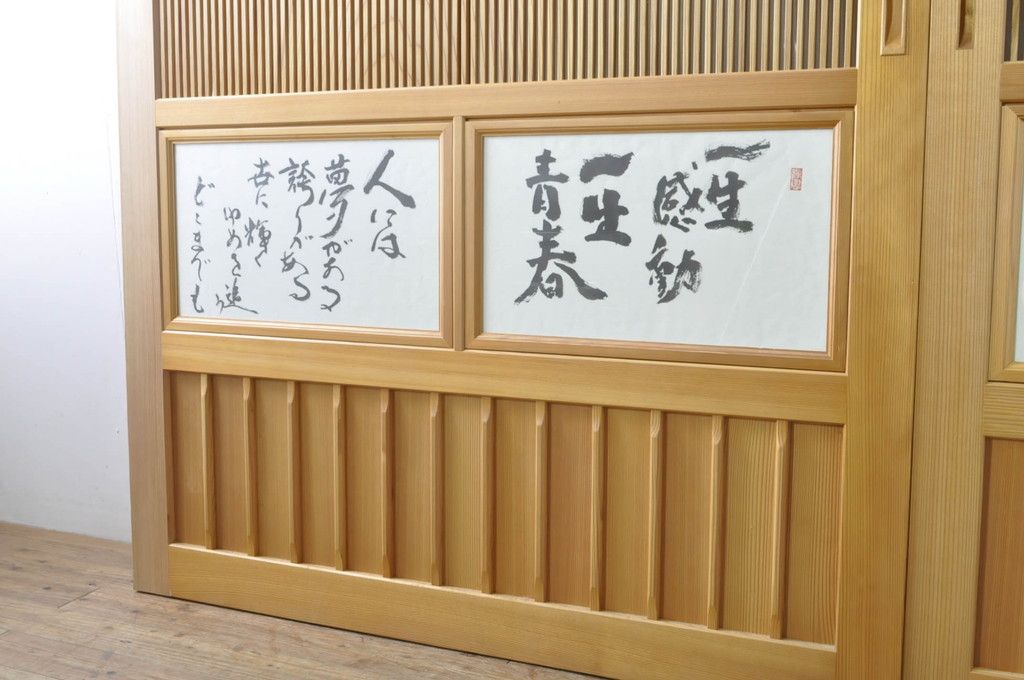 一生
感動
一生
青春
人には
夢がある
誇りがある
世に輝く
ゆめを追
どこまでも